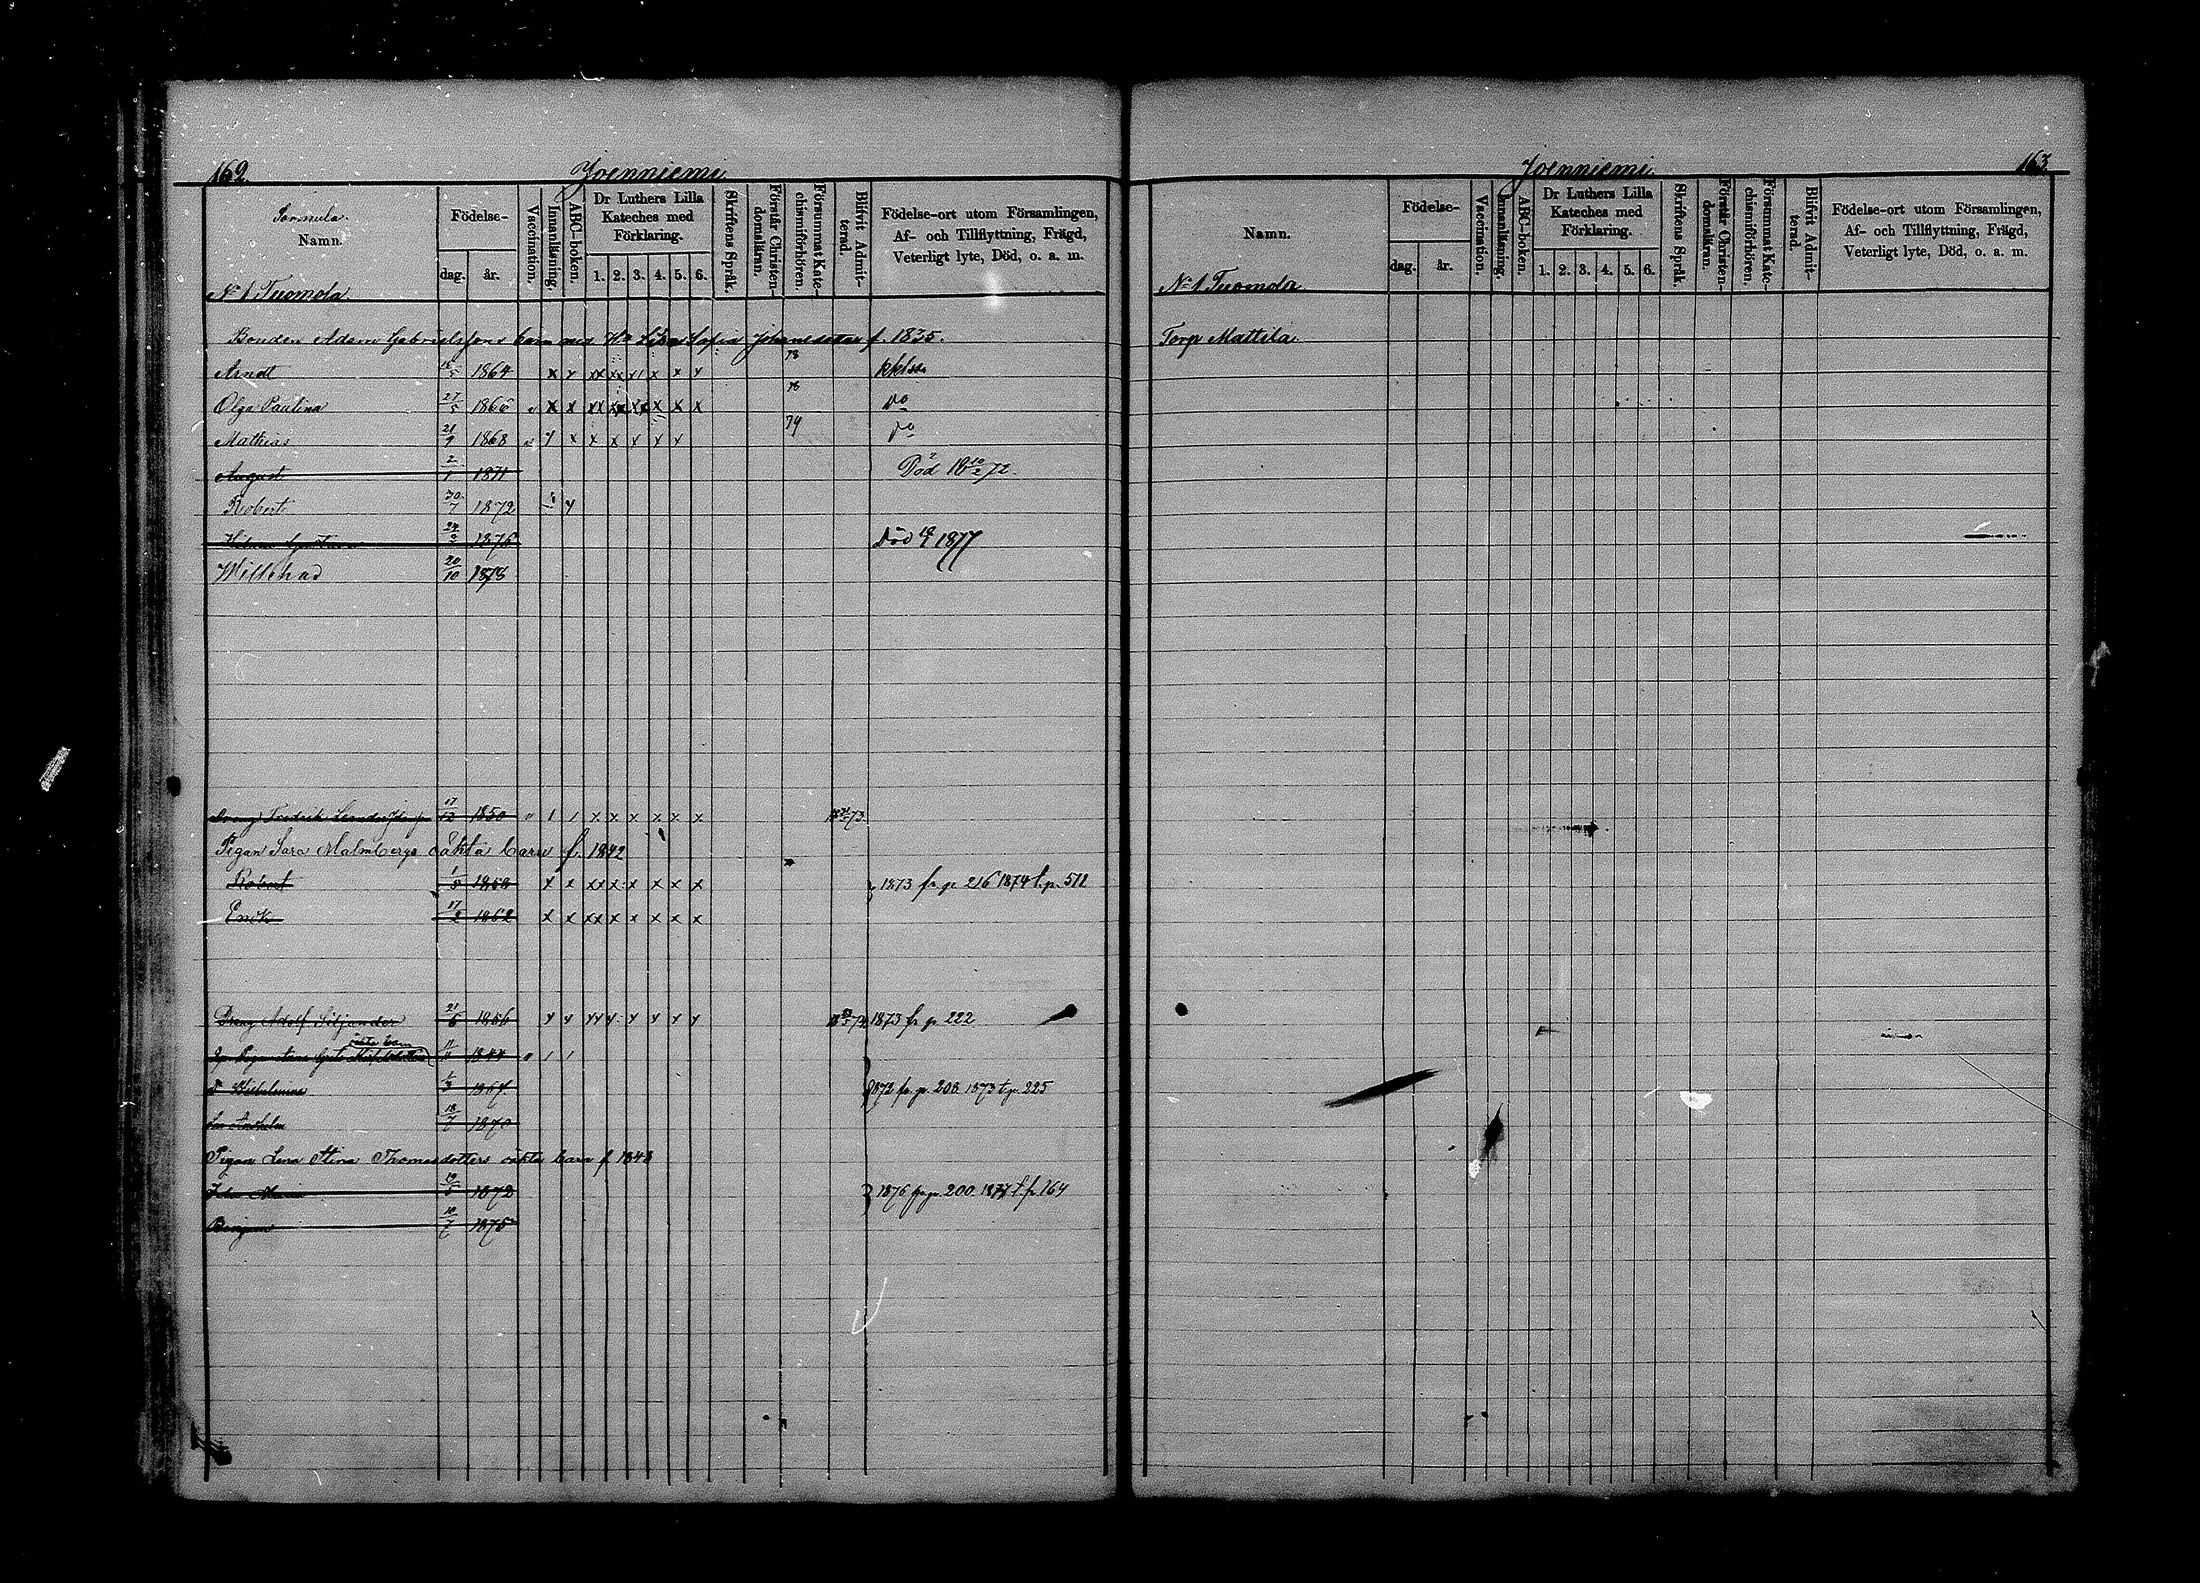 162.
Joenniemi
Namn.
Födelse-
dag.
år.
Vaccination.
Innanläsning.
ABC-boken.
Dr Luthers Lilla
Kateches med
Förklaring.
1. 2. 3. 4. 5. 6.
Skriftens Språk.
Förstår Christen-
domsläran.
Försummat Kate-
chismiförhören.
Blifvit Admit-
terad.
Födelse-ort utom Församlingen,
Af- och Tillflyttning, Frägd,
Veterligt lyte, Död, o. a. m.
No 1 Tuomola
Bonden Adam Gabrielssons barn med Sofia Johansdotter f. 1835.
Arndt 1864 x x xx xx x x x 78
Olga Paulina 27/5 1866 x x xx xx x x x x 78 do
Mathias 21/9 1868 x x x x x x 79 do
August 2/1 1871 Död 18 10/2 72.
Robert 30/7 1872
1876 död 1877
Willehad 20/10 1878
Fredrik 17/12 1850 " 1 1 x x x x x x 73
Pigan Sara Malmbergs oäkta barn f. 1842
Robert 1/5 x x xx x x x x x 1873 fr. p. 216 1874 t. p. 512
Erick 17/2 1862 x x xx x x x x x
Dreng Adolf Siljander 21/6 1856 x x xx x x x x x 74 1873 fr p 222
oäkta barn
11 1844 " 1 1
d. Wilhelmina 1867. 1872 fr. p. 208. 1873 t. p. 225
18/7 1870
Pigan Lena Stina Thomasdotters oäkta barn f 1848
Maria 1872 1876 fr. p. 200. 1877 t. p. 164
10/7 1875
Joenniemi
163.
Namn.
Födelse-
dag.
år.
Vaccination.
Innanläsning.
ABC-boken.
Dr Luthers Lilla
Kateches med
Förklaring.
1. 2. 3. 4. 5. 6.
Skriftens Språk.
Förstår Christen-
domsläran.
Försummat Kate-
chismiförhören.
Blifvit Admit-
terad.
Födelse-ort utom Församlingen,
Af- och Tillflyttning, Frägd,
Veterligt lyte, Död, o. a. m.
No 1 Tuomola
Torp Mattila